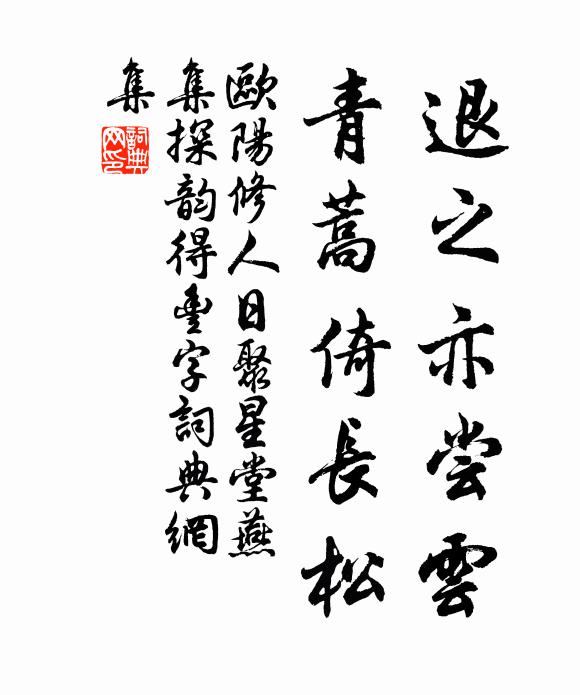 退之亦尝雲
青蒿倚長松
歐陽修人日聚星堂燕
集探韵得豊字詞典網
集
詞典网印